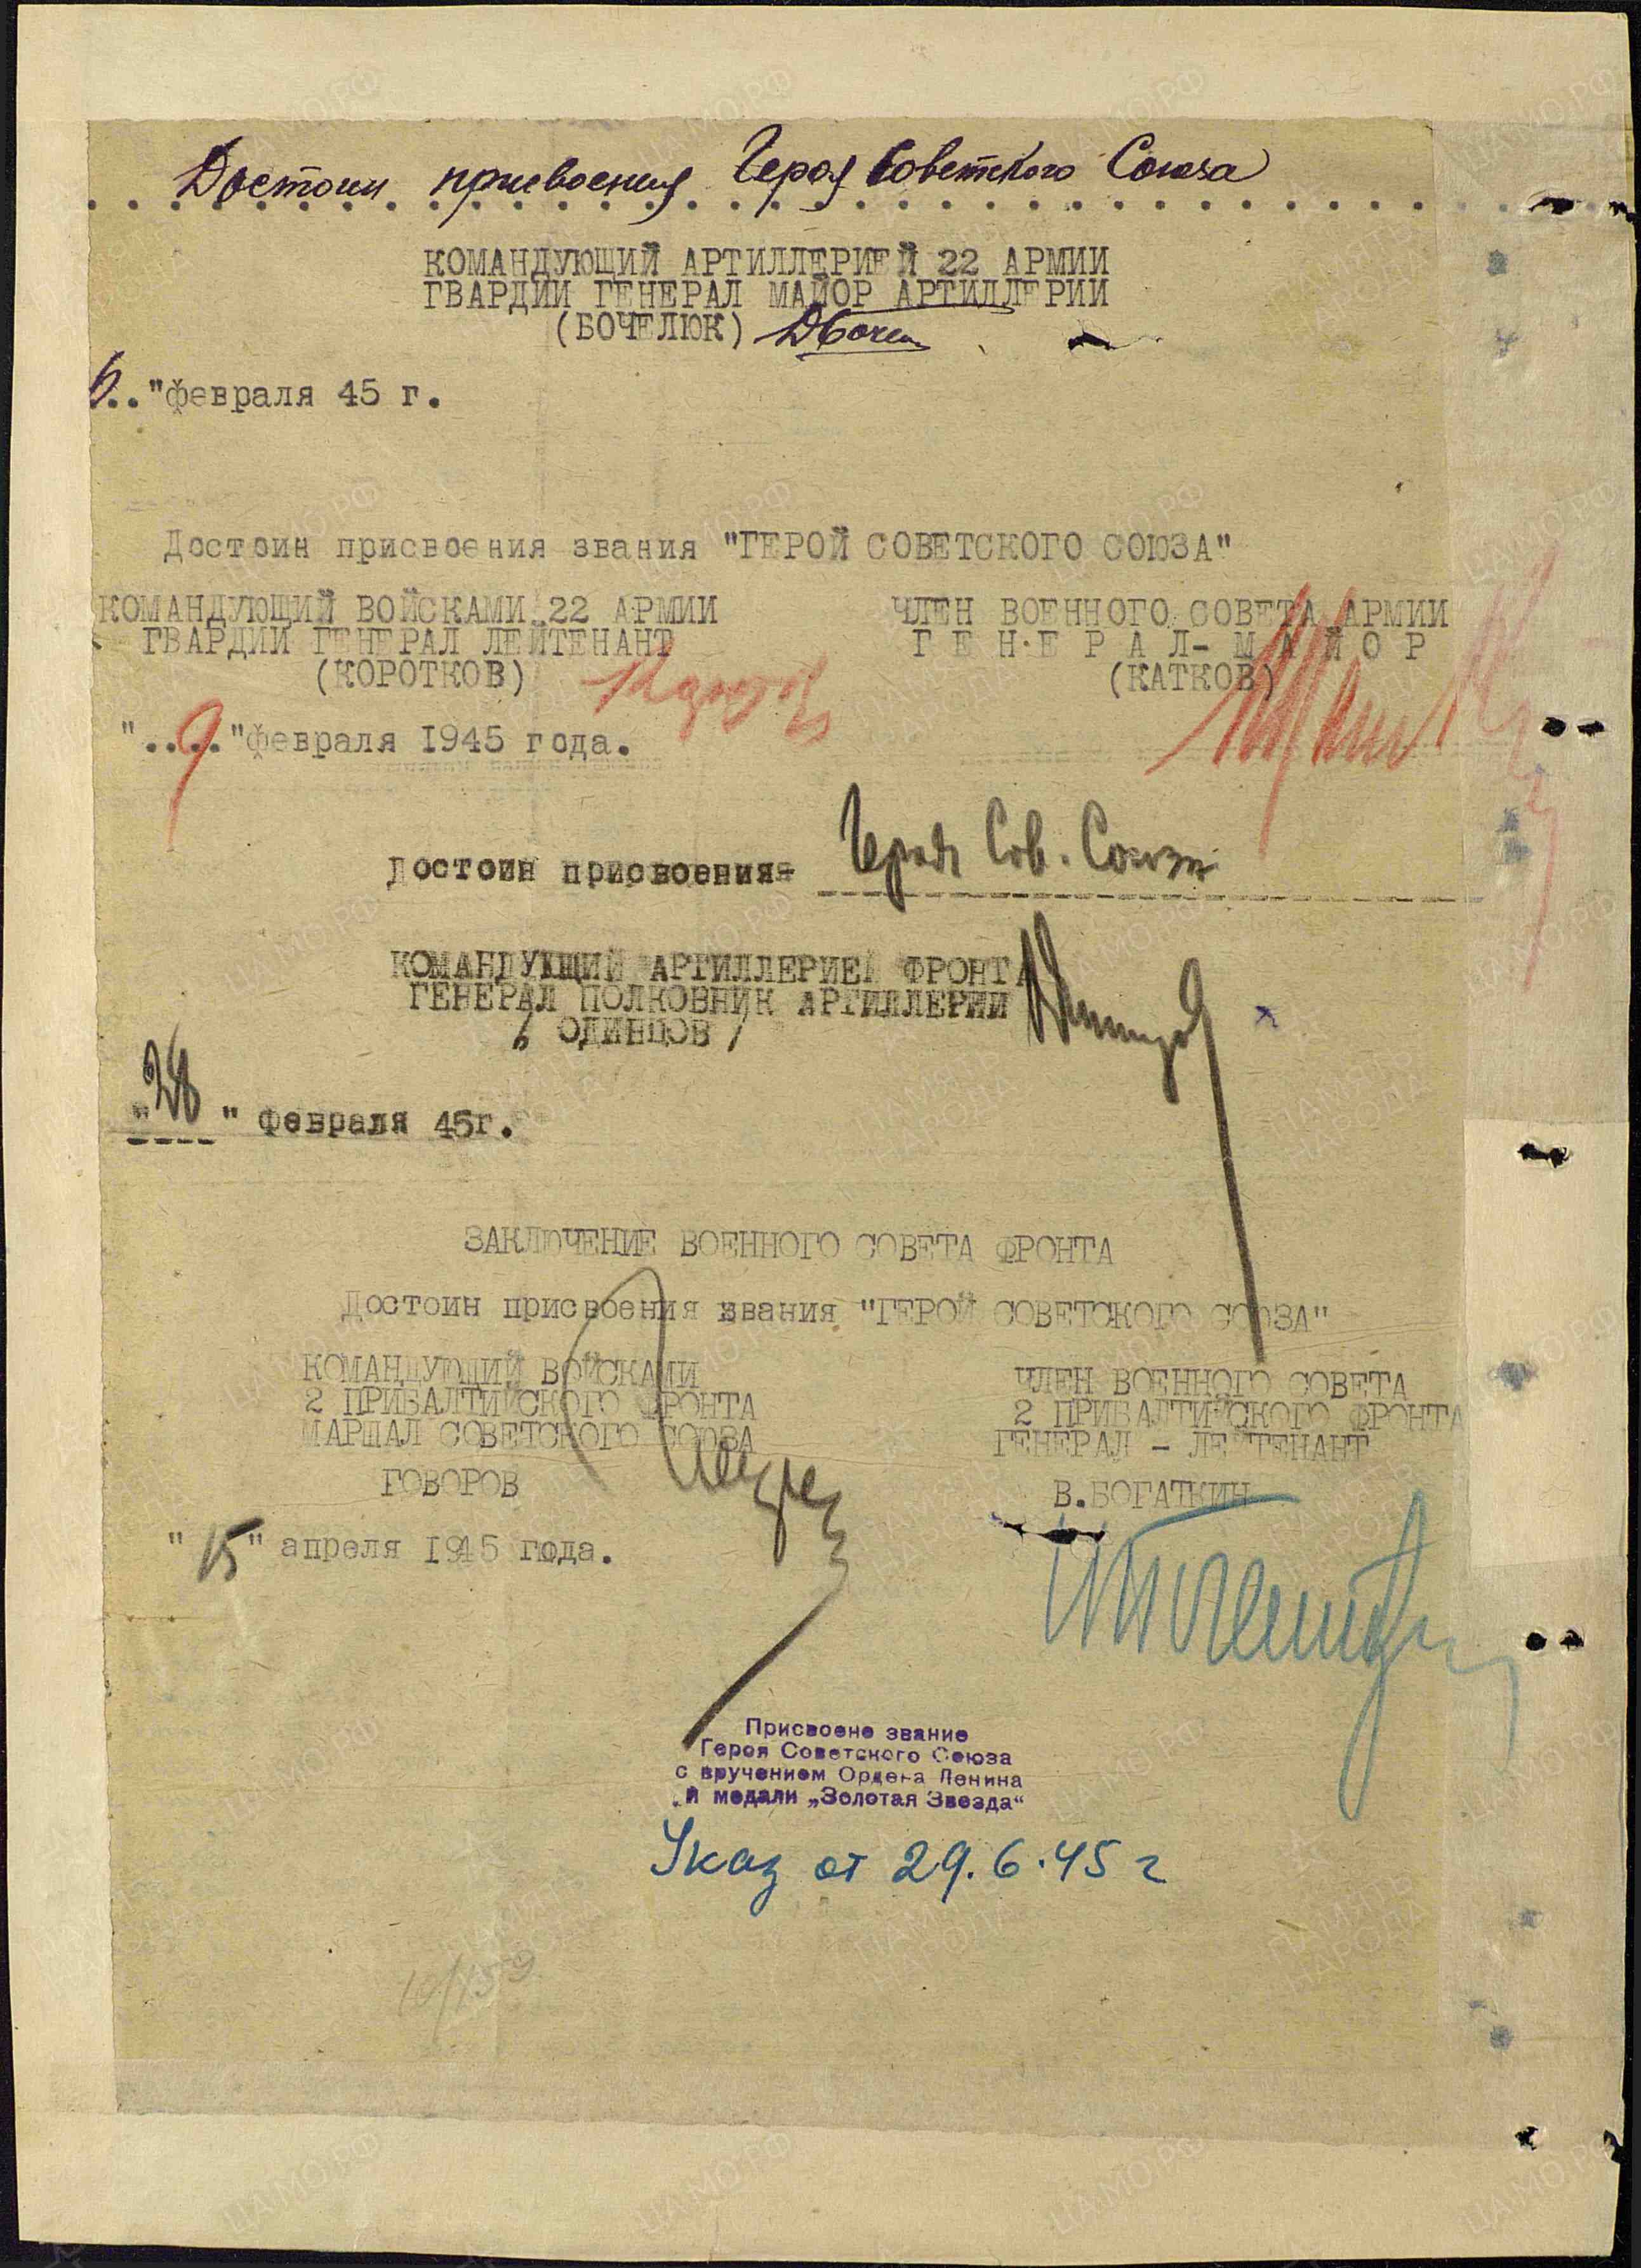 Достоин присвоения Героя Советского Союза
КОМАНДУЮЩИЙ АРТИЛЛЕРИЕЙ 22 АРМИИ
ГВАРДИИ ГЕНЕРАЛ МАЙОР АРТИЛЛЕРИИ
(БОЧЕЛЮК)
"февраля 45 г.
Достоин присвоения звания "ГЕРОЙ СОВЕТСКОГО СОЮЗА"
КОМАНДУЮЩИЙ ВОЙСКАМИ 22 АРМИИ
ГВАРДИИ ГЕНЕРАЛ ЛЕЙТЕНАНТ
(КОРОТКОВ)
"9"февраля 1945 года.
ЧЛЕН ВОЕННОГО СОВЕТА АРМИИ
ГЕНЕРАЛ-МАЙОР
(КАТКОВ)
Достоин присвоения Героя Сов. Союза
КОМАНДУЮЩИЙ АРТИЛЛЕРИЕЙ ФРОНТА
ГЕНЕРАЛ ПОЛКОВНИК АРТИЛЛЕРИИ
/ ОДИНЦОВ /
"28" февраля 45г.
ЗАКЛЮЧЕНИЕ ВОЕННОГО СОВЕТА ФРОНТА
Достоин присвоения звания "ГЕРОЙ СОВЕТСКОГО СОЮЗА"
КОМАНДУЮЩИЙ ВОЙСКАМИ
2 ПРИБАЛТИЙСКОГО ФРОНТА
МАРШАЛ СОВЕТСКОГО СОЮЗА
ГОВОРОВ
"15" апреля 1945 года.
ЧЛЕН ВОЕННОГО СОВЕТА
2 ПРИБАЛТИЙСКОГО ФРОНТА
ГЕНЕРАЛ - ЛЕЙТЕНАНТ
В.БОГАТКИН
Присвоено звание
Героя Советского Союза
с вручением Ордена Ленина
и медали „Золотая Звезда“
Указ от 29.6.45 г
10/159